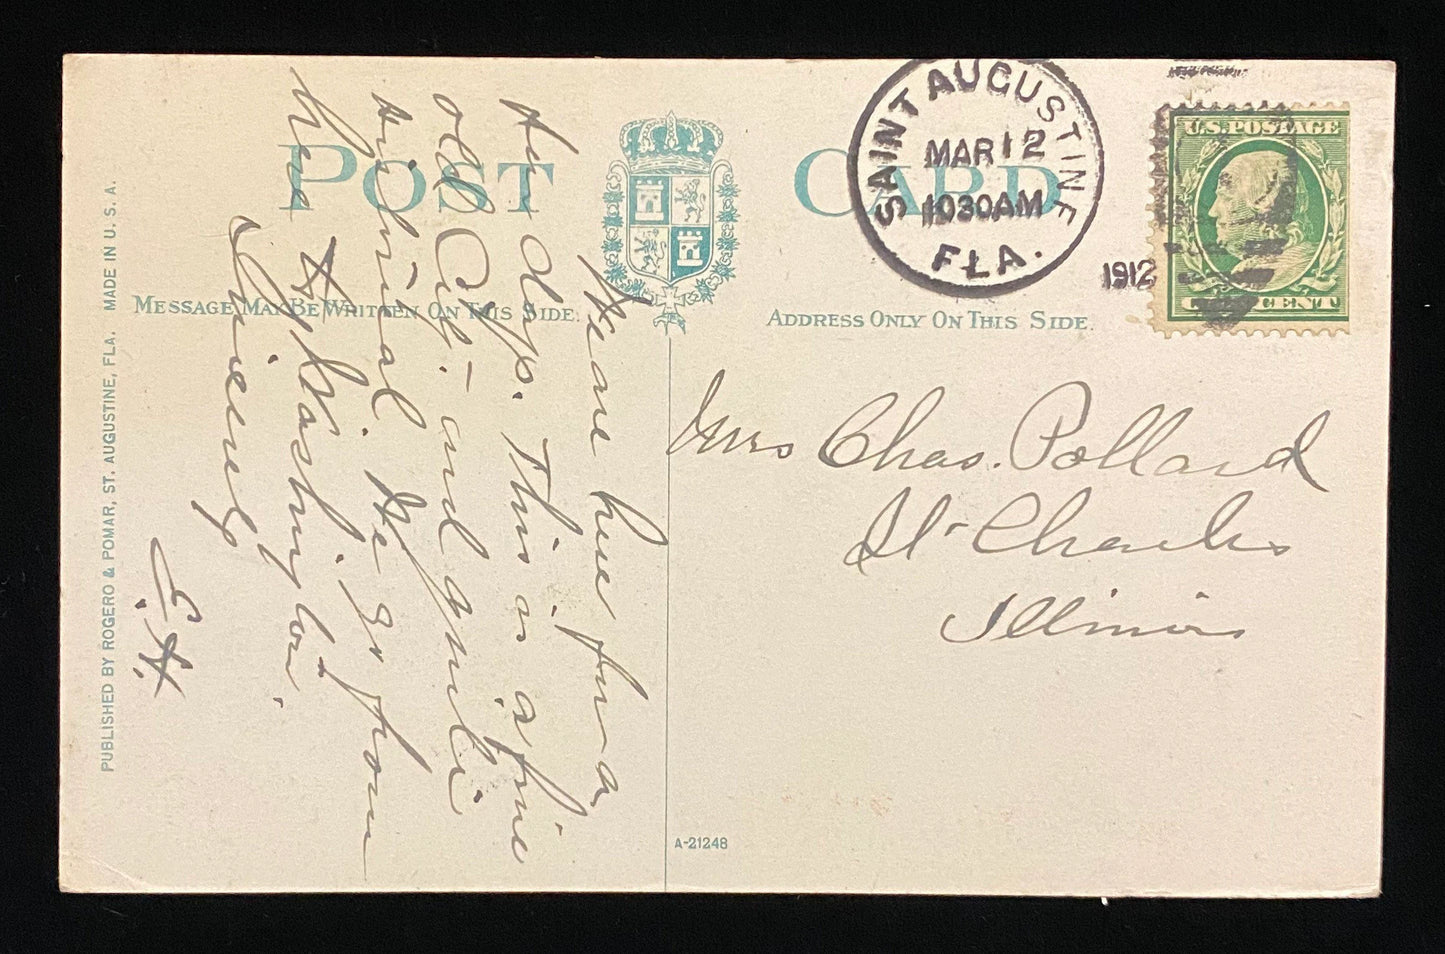 POST CARD
MESSAGE MAY BE WRITTEN ON THIS SIDE.
ADDRESS ONLY ON THIS SIDE.
SAINT AUGUSTINE
MAR 12
1030AM
FLA.
1912
U.S. POSTAGE
CENT
We are here for a
few days. This is a fine
old City - and quite
original. We go from
here to Washington.
Sincerely
E.H.
Mrs Chas. Pollard
St Charles
Illinois
A-21248
PUBLISHED BY ROGERO & POMAR, ST. AUGUSTINE, FLA. MADE IN U. S. A.